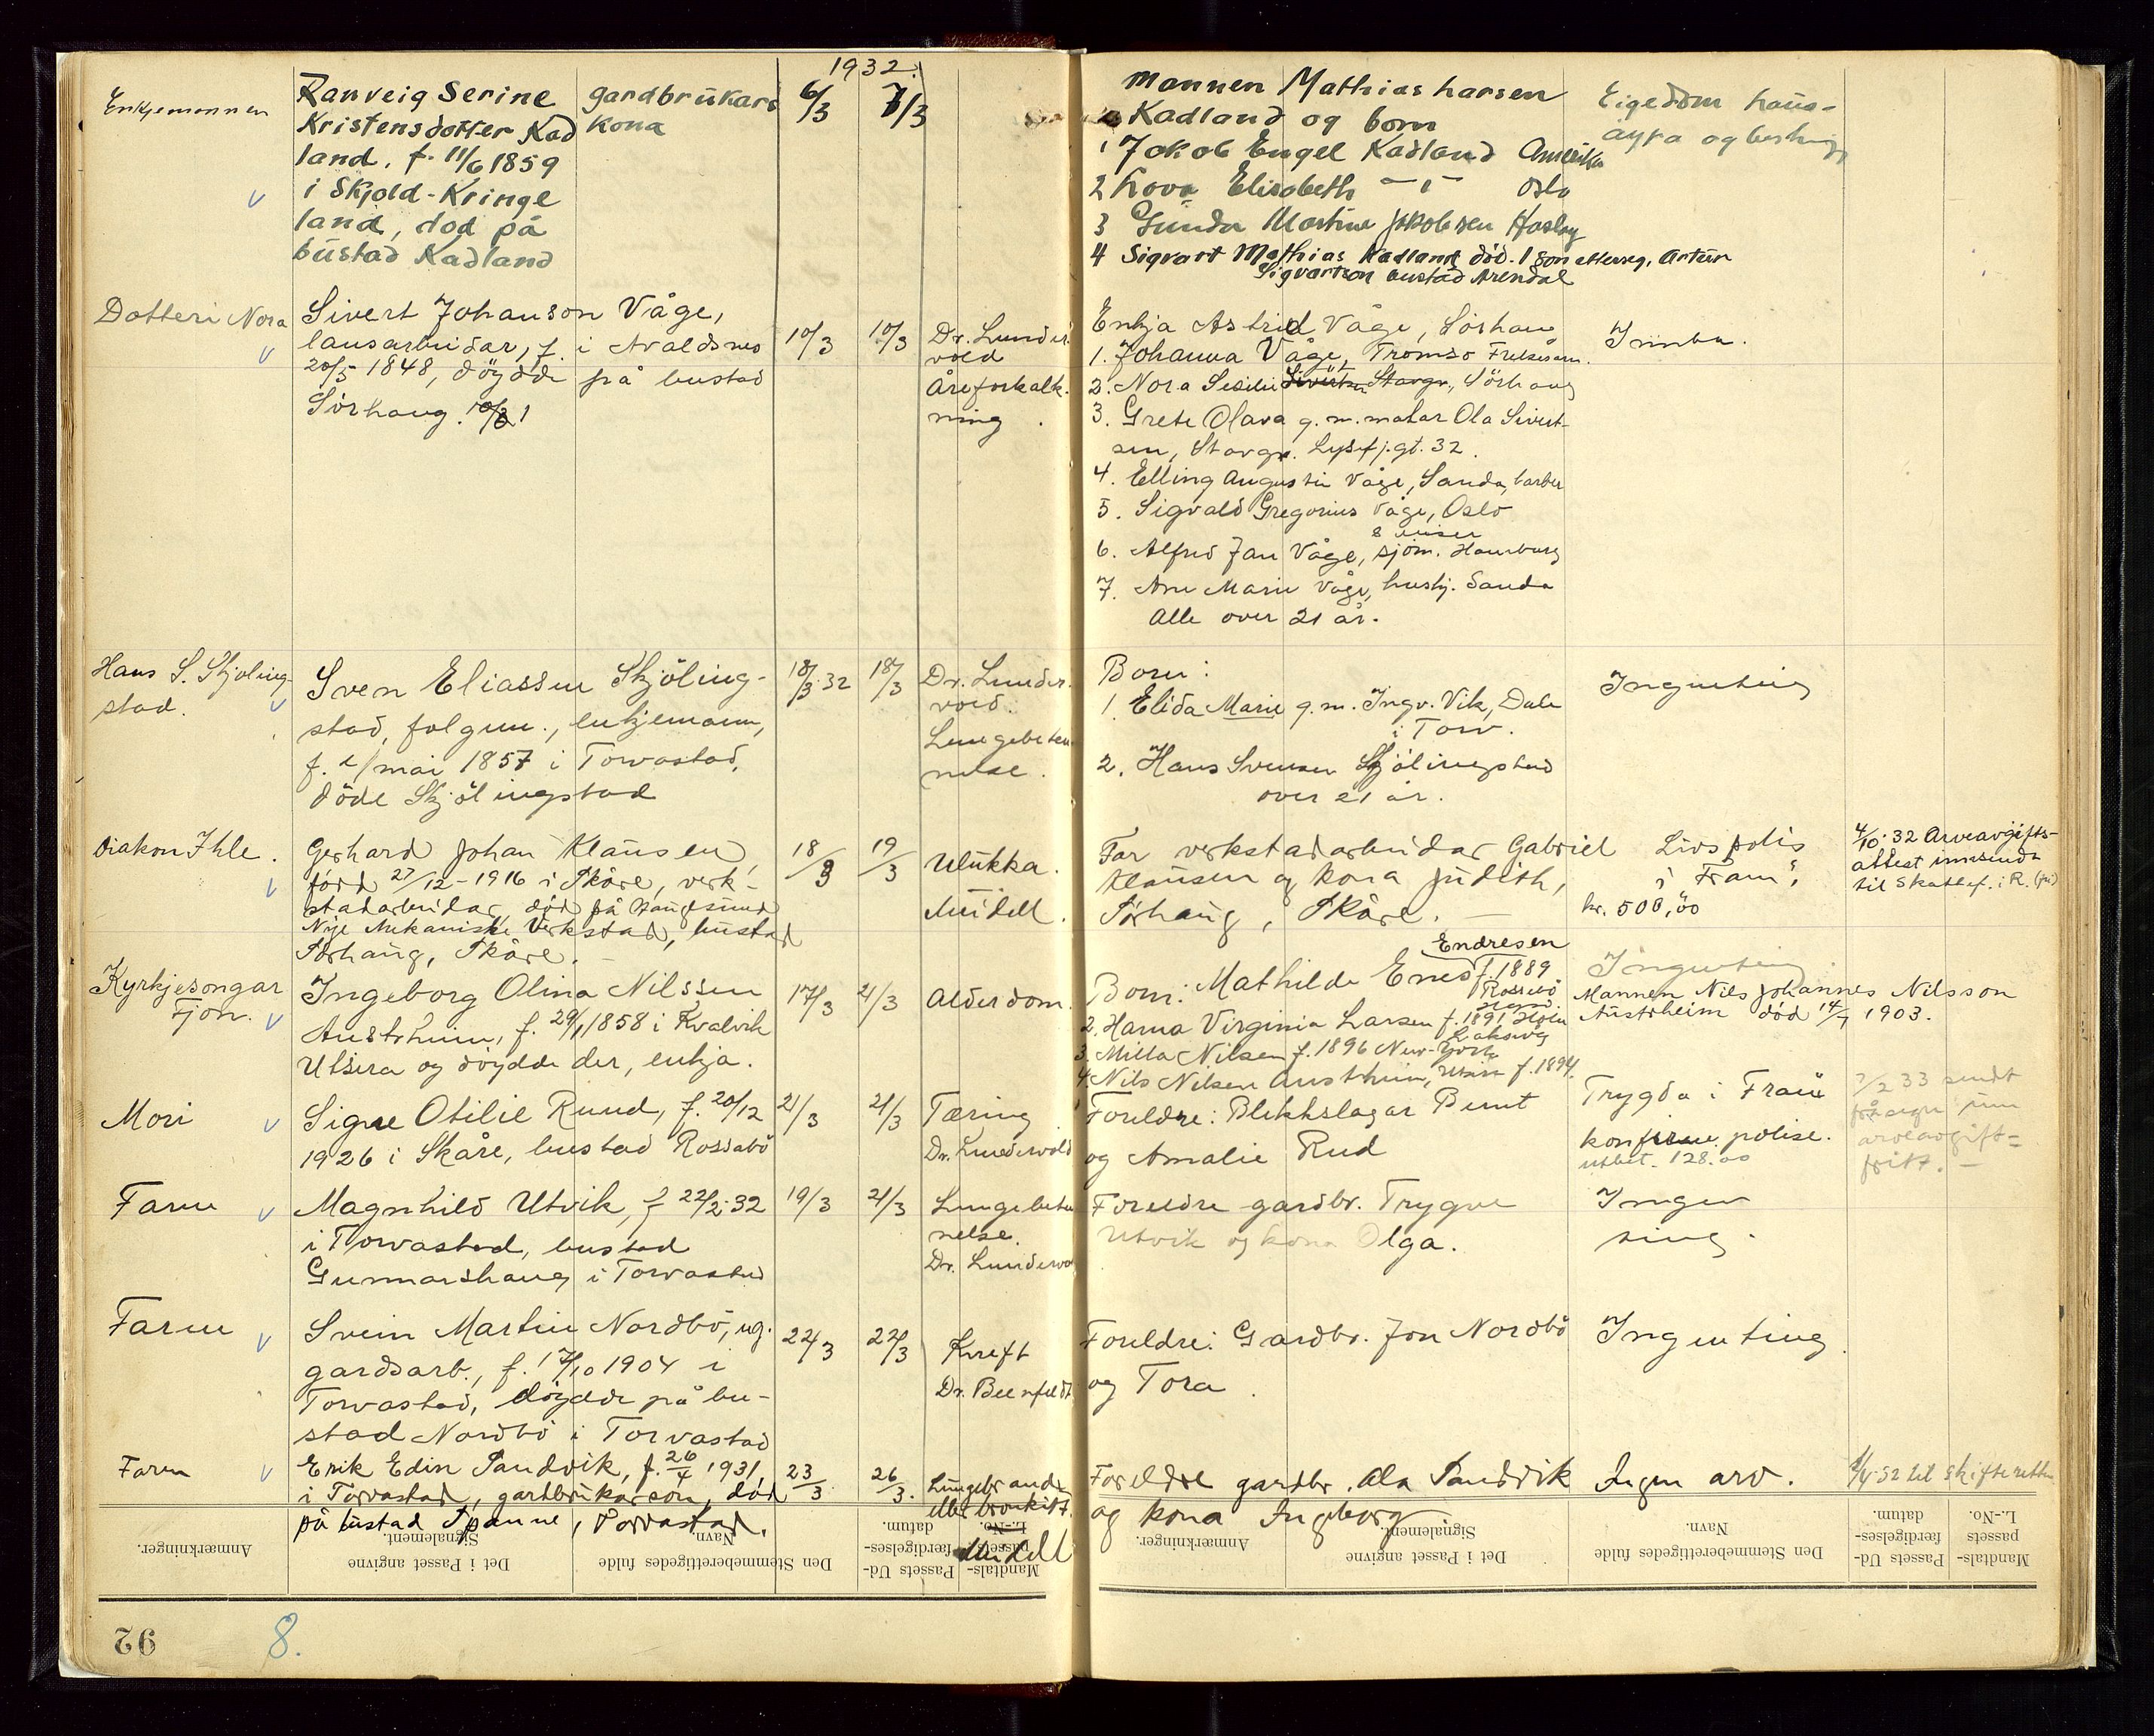 1932.
Enkjemannen
Ranveig Serine
Kristensdotter Kad
land, f. 11/6 1859
i Skjold - Kringe
land, død på
bustad Kadland
gardbrukars
kona
6/3
7/3
Mannen Mathias Larsen
Kadland og born
1 Jakob Engel Kadland Amerika
2 Lova Elisabeth - " - Oslo
3 Gunda Martine Jakobsen Hasløy
4 Sigvart Mathias Kadland død. 1 son etterseg, Artur
Sigvartson bustad Arendal
Eigedom haus-
øyra og
Dotteri Nora
Sivert Johanson Våge,
lausarbeidar, f. i Avaldsnes
20/5 1848, døydde på bustad
Sörhaug. 10/3
10/3
10/3
Dr. Lunder
vold
Åreforkalk-
ning.
Enkja Astrid Våge, Sörhaug
1. Johanna Våge, Tromsö Frelsesarm.
2. Nora Sesilie Stavgr., Sörhaug
3. Grete Olava g. m. malar Ola Sivert-
sen, Stavgr. Lysefj.gt. 32.
4. Elling Augustin Våge, Sauda, barber
5. Sigvald Gregorius Våge, Oslo
6. Alfred Jan Våge, sjöm. Hamburg
7. Ane Marie Våge, hushj. Sauda
Alle over 21 år.
Innbu.
Hans S. Skjöling-
stad.
Sven Eliassen Skjöling-
stad, folgm., enkjemann,
f. 1/mai 1857 i Torvastad,
döde Skjölingstad
18/3 32
18/3
Dr. Lunder-
vold.
Lungebeten-
nelse.
Born:
1. Elida Marie g. m. Ingv. Vik, Dale
i Torv.
2. Hans Svensen Skjölingstad
over 21 år.
Ingenting
Diakon Ihle.
Gerhard Johan Klausen,
fødd 27/12 - 1916 i Skåre, verk-
stadarbeidar død på Haugesund
Nye Mekaniske Verkstad, bustad
Sørhaug, Skåre. -
18/3
19/3
Ulukka.
Meidell.
Far verkstadarbeidar Gabriel
Klausen og kona Judith,
Sørhaug, Skåre. -
Livspolis
i "Fram",
kr. 500,00
4/10-32 Arveavgifts-
attest innsend
til Skattef. i R. (fri)
Kyrkjesongar
Fjon.
Ingeborg Olina Nilssen
Austrheim, f. 29/1 1858 i Kvalvik
Utsira og döydde der, enkja.
17/3
21/3
Alderdom.
Born: Mathilde Enes Endresen f. 1889
Rossebö
2. Hanna Virginia Larsen f. 1891
3. Milla Nilsen f. 1896 New-York
4. Nils Nilsen Austrheim, Utsira f. 1894.
Ingenting.
Mannen Nils Johannes Nilsson
Austrheim død 14/7 1903.
Mori
Signe Otilie Ruud, f. 20/12
1926 i Skåre, bustad Rossabö
21/3
21/3
Tæring.
Dr. Lundervold
Foreldre: Blikkslagar Bernt
og Amalie Rud
Trygda i Fram
konfirm. polise.
utbet. 128.00
7/2 33 sendt
arveavgift-
fritt. -
Faren
Magnhild Utvik, f 22/2-32
i Torvastad, bustad
Gunnarshaug i Torvastad
19/3
21/3
Lungebeten
nelse.
Dr. Lundervo
Foreldre gardbr. Trygve
Utvik og kona Olga.
Ingen
ting.
Faren
Svein Martin Nordbö, ug.
gardsarb., f. 17/10 1904 i
Torvastad, döydde på bu-
stad Nordbö i Torvastad
22/3
22/3
Kreft
Dr. Beenfeldt
Foreldre: Gardbr. Jon Nordbö
og Tora.
Ingenting.
Faren
Erik Edin Sandvik, f. 26/4 1931,
i Torvastad, gardbrukarson, død
på bustad Spanne, Torvastad.
23/3
26/3.
Lungebrand
eller bronkitt.
Meidell
Foreldre gardbr. Ola Sandvik
og kona Ingeborg.
Ingen arv.
til skifteretten
Anmærkninger.
Det i Passet angivne
Signalement.
Den Stemmeberettigedes fulde
Navn.
Passets Ud-
færdigelses-
datum.
Mandtals-
passets
L.-No.
Anmærkninger.
Det i Passet angivne
Signalement.
Den Stemmeberettigedes fulde
Navn.
Passets Ud-
færdigelses-
datum.
Mandtals-
passets
L.-No.
92
8.